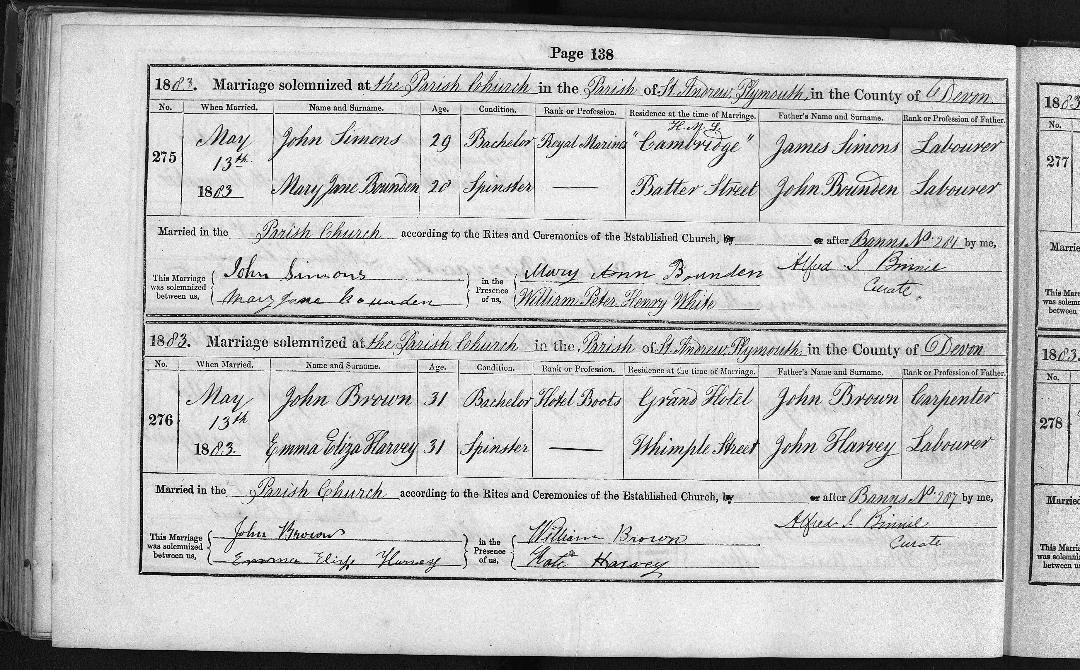 Page 138
1883. Marriage solemnized at the Parish Church in the Parish of St. Andrew, Plymouth in the County of Devon
No. When Married. Name and Surname. Age. Condition. Rank or Profession. Residence at the time of Marriage. Father's Name and Surname. Rank or Profession of Father.
275 May 13th 1883
John Simons 29 Bachelor Royal Marine H.M.S. "Cambridge" James Simons Labourer
Mary Jane Bounden 20 Spinster — Batter Street John Bounden Labourer
Married in the Parish Church according to the Rites and Ceremonies of the Established Church, by or after Banns No. 281 by me,
This Marriage was solemnized between us,
John Simons
Mary Jane Bounden
in the Presence of us,
Mary Ann Bounden
William Peter Henry White
Alfred J. Binnie
Curate.
1883. Marriage solemnized at the Parish Church in the Parish of St. Andrew, Plymouth in the County of Devon
No. When Married. Name and Surname. Age. Condition. Rank or Profession. Residence at the time of Marriage. Father's Name and Surname. Rank or Profession of Father.
276 May 13th 1883.
John Brown 31 Bachelor Hotel Boots Grand Hotel John Brown Carpenter
Emma Eliza Harvey 31 Spinster — Whimple Street John Harvey Labourer
Married in the Parish Church according to the Rites and Ceremonies of the Established Church, by or after Banns No. 287 by me,
This Marriage was solemnized between us,
John Brown
Emma Eliza Harvey
in the Presence of us,
William Brown
Kate Harvey
Alfred J. Binnie
Curate
1883
No.
277
Married
This Marri
was solemn
between
1883.
No.
278
Married
This Marri
was solemniz
between us